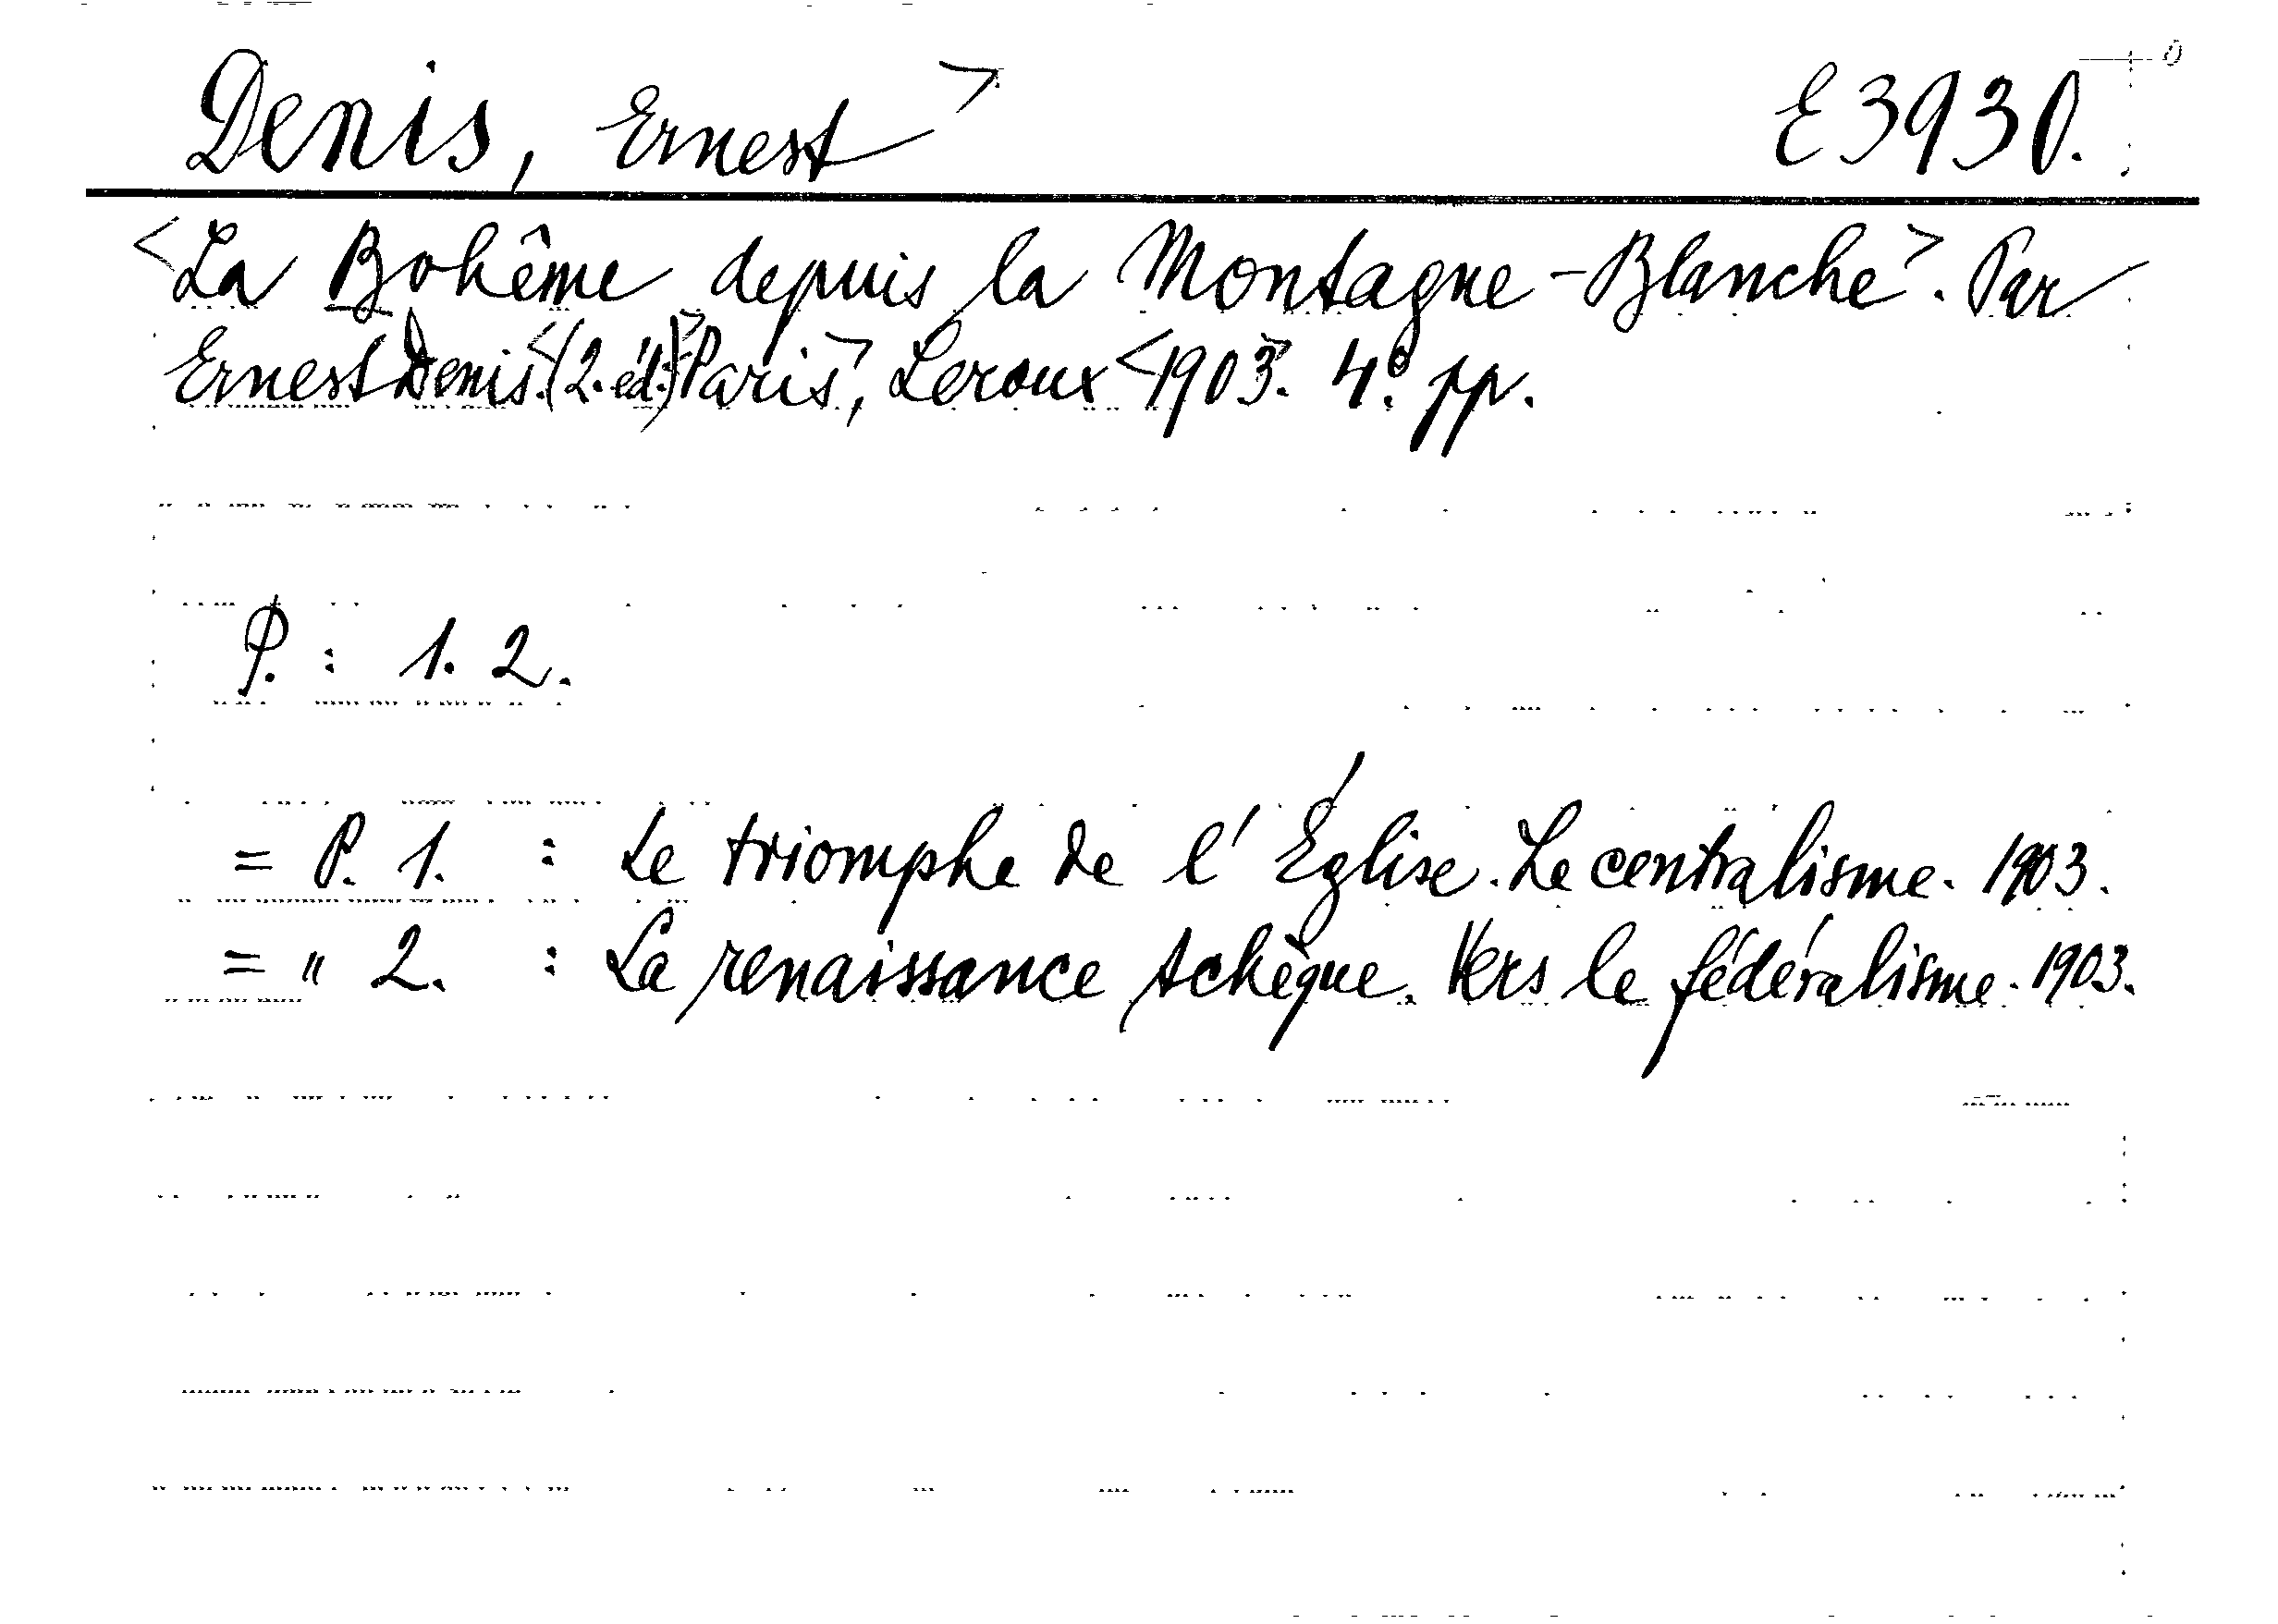 Denis, Ernest> E 3930.
<La Bohême depuis la Montagne-Blanche>. Par
Ernest Denis.<(2. éd.)>Paris>, Leroux <1903>. 4.° pp.
P. : 1. 2.
= P. 1. : Le triomphe de l'Église. Le centralisme. 1903.
= " 2. : La renaissance tchèque. Vers le fédéralisme. 1903.